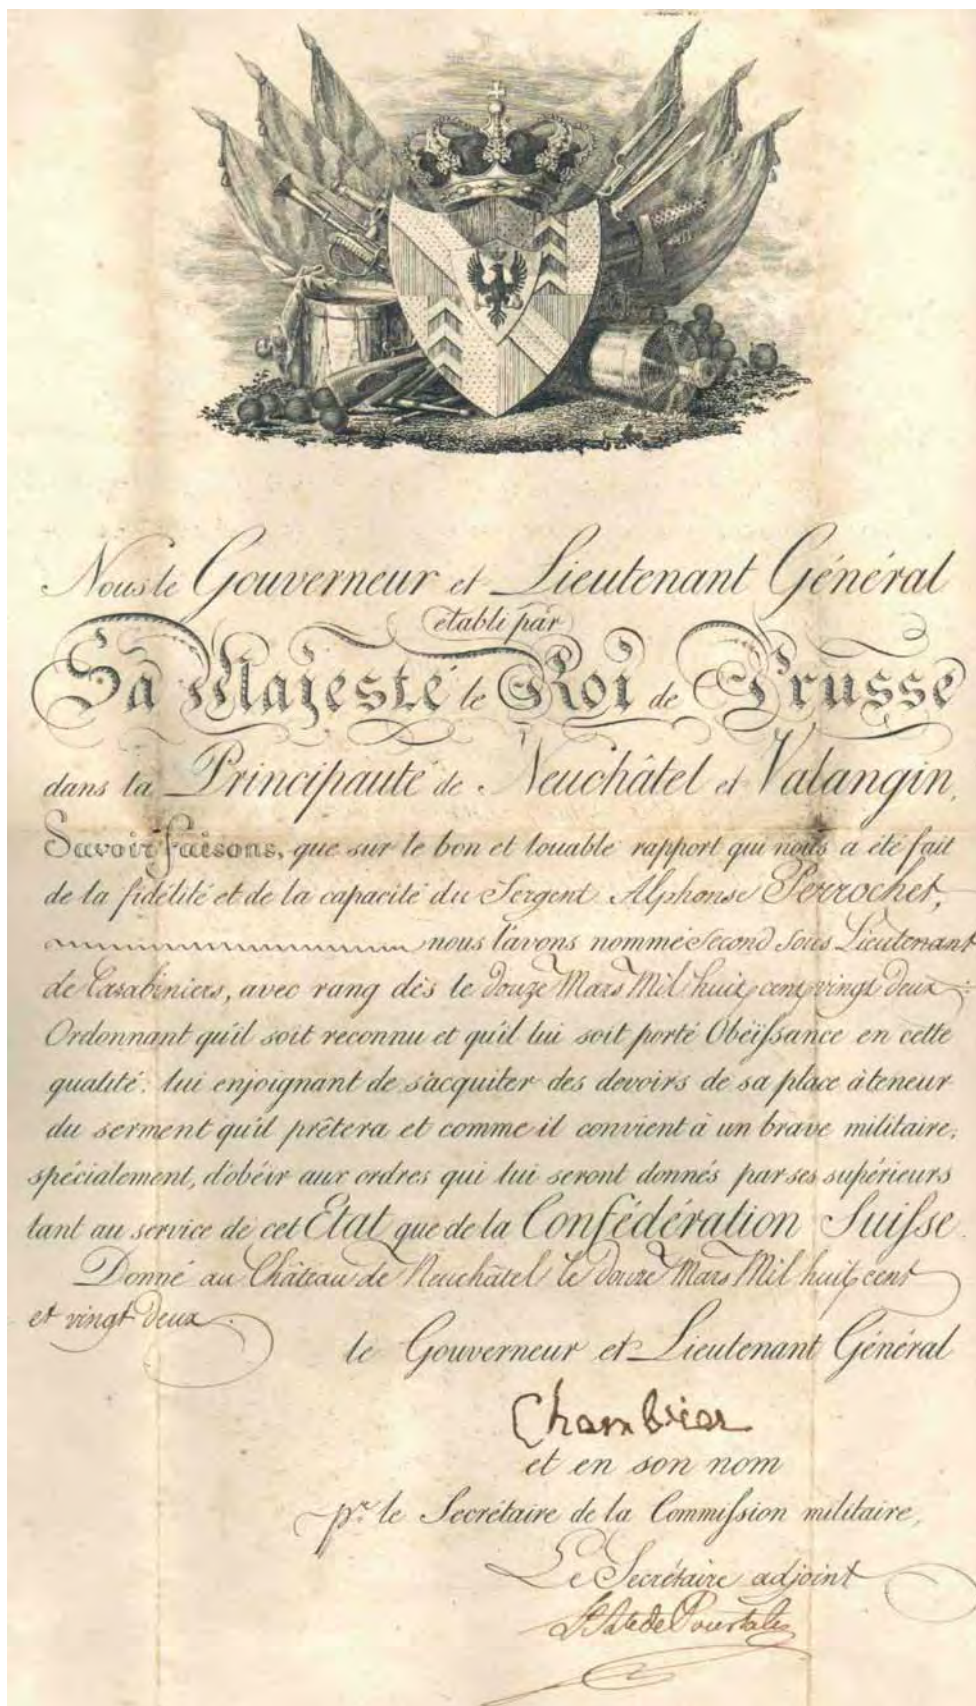 Nous le Gouverneur et Lieutenant Général
établi par
Sa Majesté le Roi de Prusse
dans la Principauté de Neuchâtel et Valangin,
Savoir faisons, que sur le bon et louable rapport qui nous a été fait
de la fidélité et de la capacité du Sergent Alphonse Perrochet,
nous l'avons nommé Second Sous Lieutenant
de Carabiniers, avec rang dès le douze Mars Mil huit cent vingt deux
Ordonnant qu'il soit reconnu et qu'il lui soit porté Obéïſsance en cette
qualité: lui enjoignant de s'acquiter des devoirs de sa place à teneur
du serment qu'il prêtera et comme il convient à un brave militaire,
spécialement, d'obéir aux ordres qui lui seront donnés par ses supérieurs
tant au service de cet État que de la Confédération Suisse.
Donné au Château de Neuchâtel le douze Mars Mil huit cent
et vingt deux.
le Gouverneur et Lieutenant Général
Chambrier
et en son nom
pr. le Secrétaire de la Commiſsion militaire,
Le Secrétaire adjoint
de Pourtalès